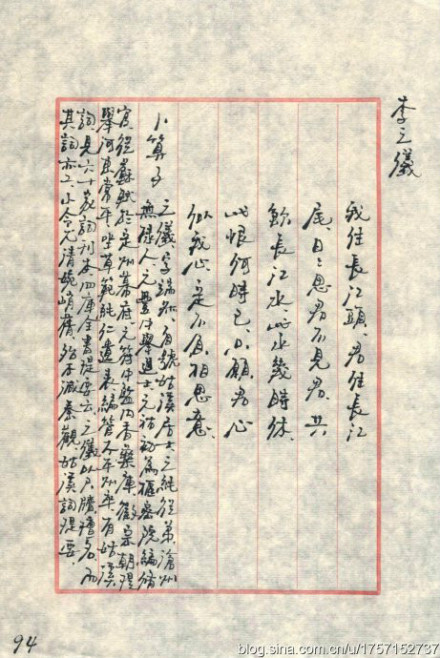 李之儀
我住長江頭、君住長江
尾、日〻思君不見君、共
飲長江水、此水幾時休、
此恨何時已、只願君心
似我心、定不負相思意。
卜算子
之儀、字端叔、自號姑溪居士、之純從弟、滄州
無棣人、元豐中舉進士、元祐初為樞密院編修
官、從蘇軾於定州幕府、元符中監內香藥庫、徽宗朝提
舉河東常平、坐草範純仁遺表、編管太平州、卒、有姑溪
詞見六十家詞刊本四庫全書提要云、之儀以尺牘擅名、而
其詞亦工、小令尤清婉峭蒨、殆不減秦觀、姑溪詞提要。
94
blog.sina.com.cn/u/1757152737